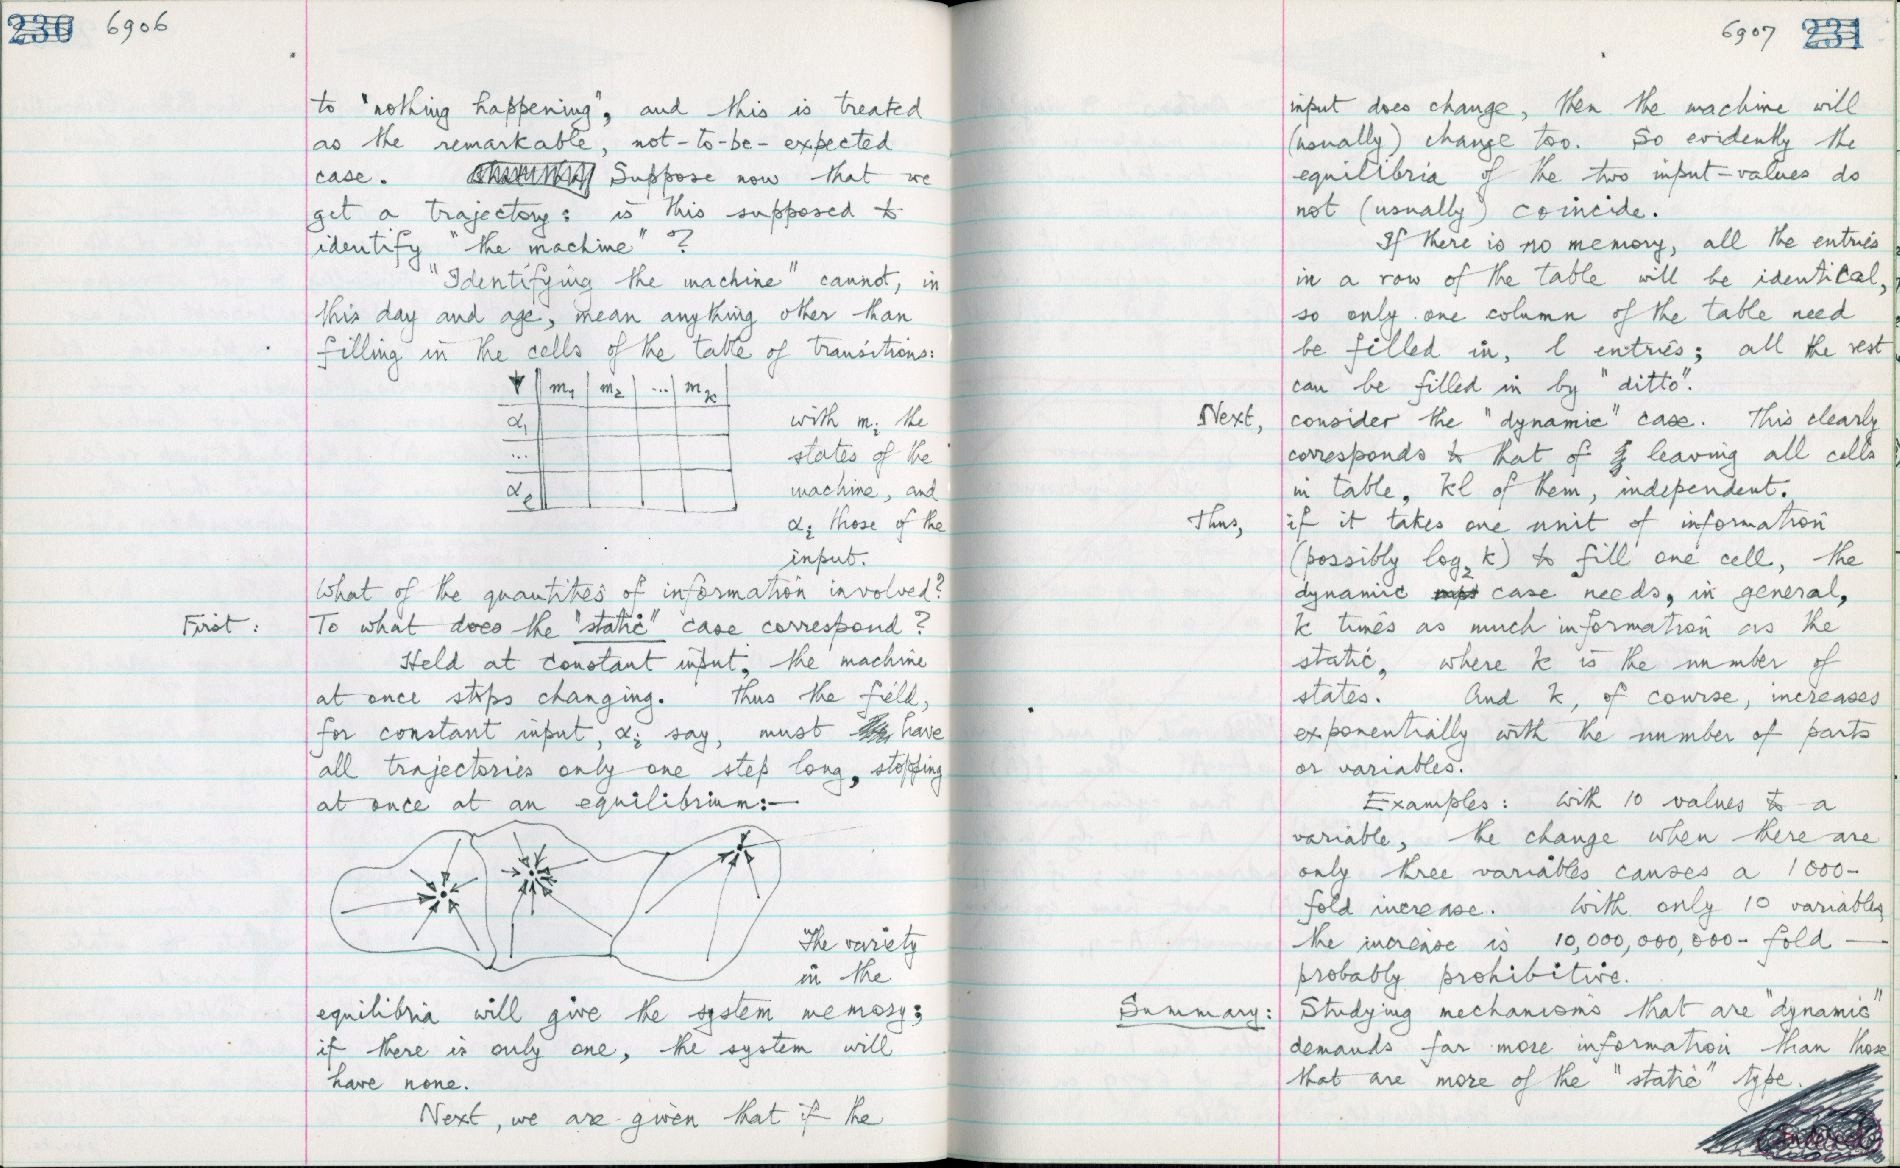 230 6906
to "nothing happening", and this is treated
as the remarkable, not-to-be-expected
case. Suppose now that we
get a trajectory: is this supposed to
identify "the machine"?
"Identifying the machine" cannot, in
this day and age, mean anything other than
filling in the cells of the table of transitions:
↓ m1 m2 ... mk
α1
...
αl
with mi the
states of the
machine, and
αi those of the
input.
What of the quantities of information involved?
First: To what does the "static" case correspond?
Held at constant input, the machine
at once stops changing. Thus the field,
for constant input, αi say, must have
all trajectories only one step long, stopping
at once at an equilibrium:—
The variety
in the
equilibria will give the system memory;
if there is only one, the system will
have none.
Next, we are given that if the
6907 231
input does change, then the machine will
(usually) change too. So evidently the
equilibria of the two input-values do
not (usually) coincide.
If there is no memory, all the entries
in a row of the table will be identical,
so only one column of the table need
be filled in, l entries; all the rest
can be filled in by "ditto".
Next, consider the "dynamic" case. This clearly
corresponds to that of leaving all cells
in table, kl of them, independent.
Thus, if it takes one unit of information
(possibly log2 k) to fill one cell, the
dynamic case needs, in general,
k times as much information as the
static, where k is the number of
states. And k, of course, increases
exponentially with the number of parts
or variables.
Examples: With 10 values to a
variable, the change when there are
only three variables causes a 1000-
fold increase. With only 10 variables,
the increase is 10,000,000,000-fold —
probably prohibitive.
Summary: Studying mechanisms that are "dynamic"
demands far more information than those
that are more of the "static" type.